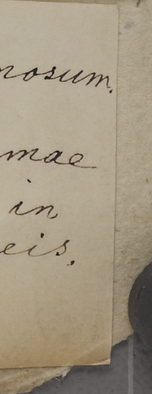 nosum.
mae
in
eis.